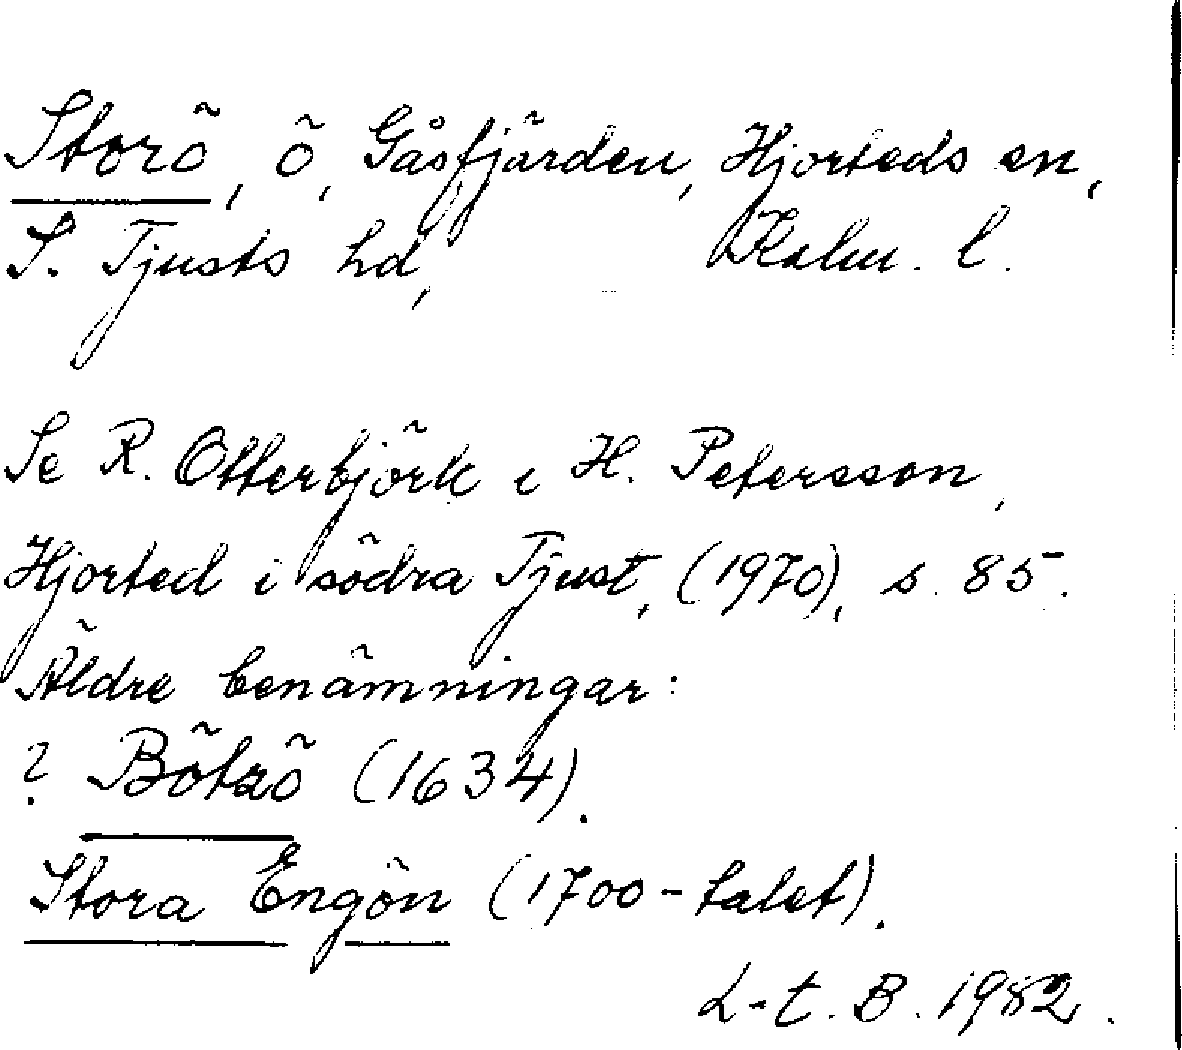 Storö, ö, Gåsfjärden, Hjorteds sn,
S. Tjusts hd, Kalm. l.
Se R. Otterbjörk i H. Petersson,
Hjorted i södra Tjust, (1970), s. 85.
Äldre benämningar:
? Bötzö (1634).
Stora Engön (1700-talet).
L-t. B. 1982.